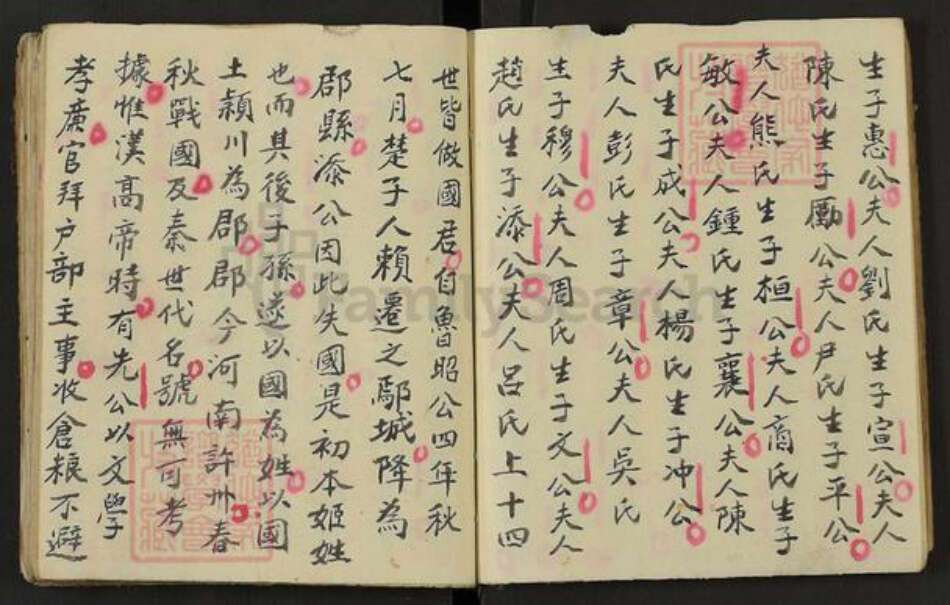 生子惠公夫人劉氏生子宣公夫人
陳氏生子勵公夫人尹氏生子平公
夫人熊氏生子桓公夫人商氏生子
敏公夫人鍾氏生子襄公夫人陳
氏生子成公夫人楊氏生子冲公
夫人彭氏生子章公夫人吳氏
生子穆公夫人周氏生子文公夫人
趙氏生子添公夫人呂氏上十四
世皆做國君自魯昭公四年秋
七月楚子人賴遷之鄢城降為
郡縣添公因此失國是初本姬姓
也而其後子孫遂以國為姓以國
土潁川為郡郡今河南許州春
秋戰國及秦世代名號無可考
據惟漢高帝時有先公以文學
孝廣官拜户部主事收倉粮不避
FamilySearch